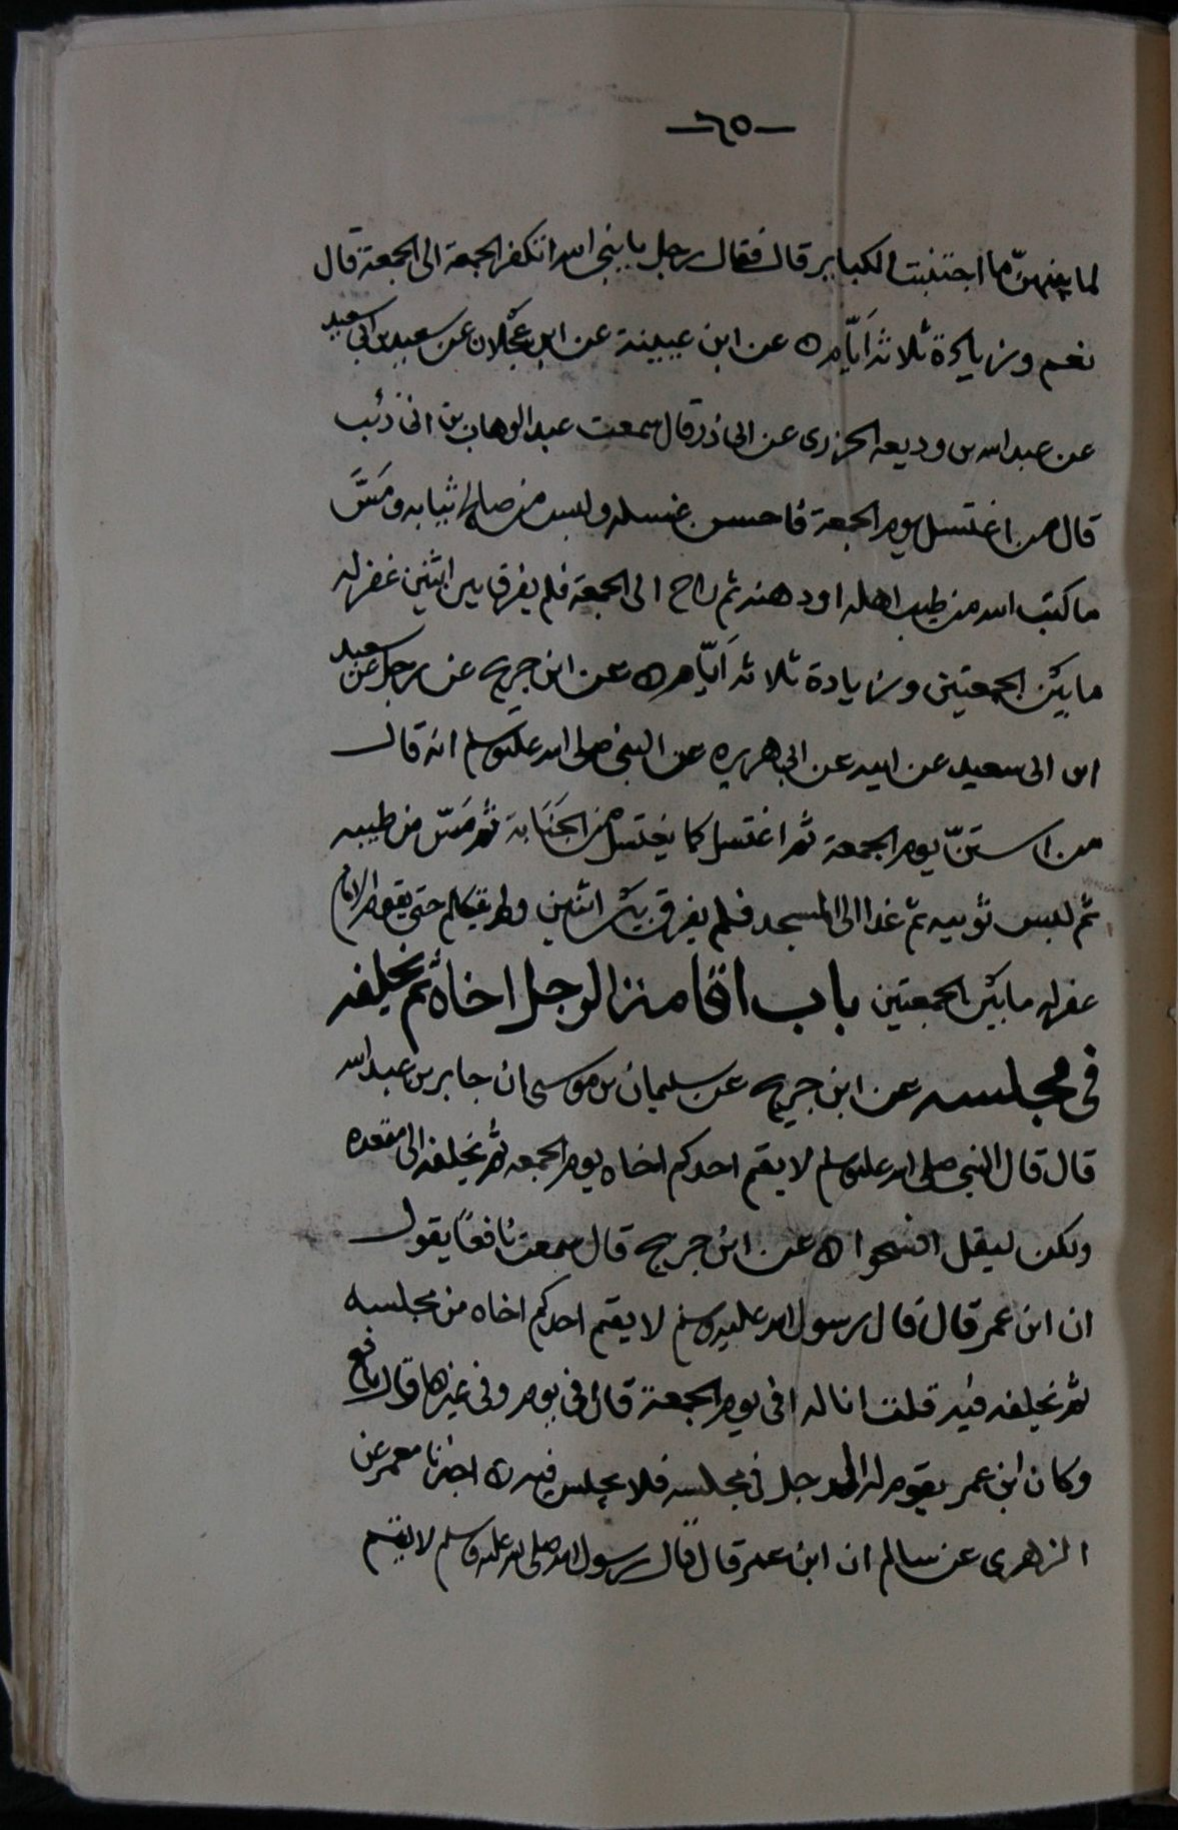 —٦٥—
لما بينهنّ ما اجتنبت الكباير قال فقال رجل يا نبي الله اتكفر الجمعة الى الجمعة قال
نعم وزيادة ثلاثة اَيّام ٥ عن ابن عيينة عن ابن عَجْلان عن سعيد بن ابى سعيد
عن عبد الله بن وديعه الحزرى عن ابى ذر قال سمعت عبد الوهاب بن ابى ذئب
قال من اغتسل يوم الجمعة فاحسن غسله ولبس من صالح ثيابه ومَسَّ
ما كتب الله من طيب اهله او دهنه ثم راح الى الجمعة فلم يفرق بين اثنين غفر له
ما بين الجمعتين وزيادة ثلاثة اَيّام ٥ عن ابن جريج عن رجل عن سعيد
ابن ابى سعيد عن ابيه عن ابى هريره عن النبي صلى الله عليه وسلم انه قال
من استنّ يوم الجمعة ثم اغتسل كما يغتسل من الجَنَابة ثم مَسّ من طيبه
ثم لبس ثوبيه ثم غدا الى المسجد فلم يفرق بين اثنين ولم يتكلم حتى يقوم الامام
غفر له ما بين الجمعتين باب اقامة الرجل اخاه ثم يخلفه
فى مجلسه عن ابن جريج عن سليمان بن موسى ان جابر بن عبد الله
قال قال النبي صلى الله عليه وسلم لا يقم احدكم اخاه يوم الجمعه ثم يخلفه الى مقعده
ولكن ليقل افسحوا ٥ عن ابن جريج قال سمعت نافعًا يقول
ان ابن عمر قال قال رسول الله عليه وسلم لا يقم احدكم اخاه من مجلسه
ثم يخلفه فيه قلت انا له افى يوم الجمعة قال فى يوم وفى غيرها قال نافع
وكان ابن عمر يقوم له الرجل فى مجلسه فلا يجلس فيه ٥ اخبرنا معمر عن
الزهرى عن سالم ان ابن عمر قال قال رسول الله صلى الله عليه وسلم لا يقم